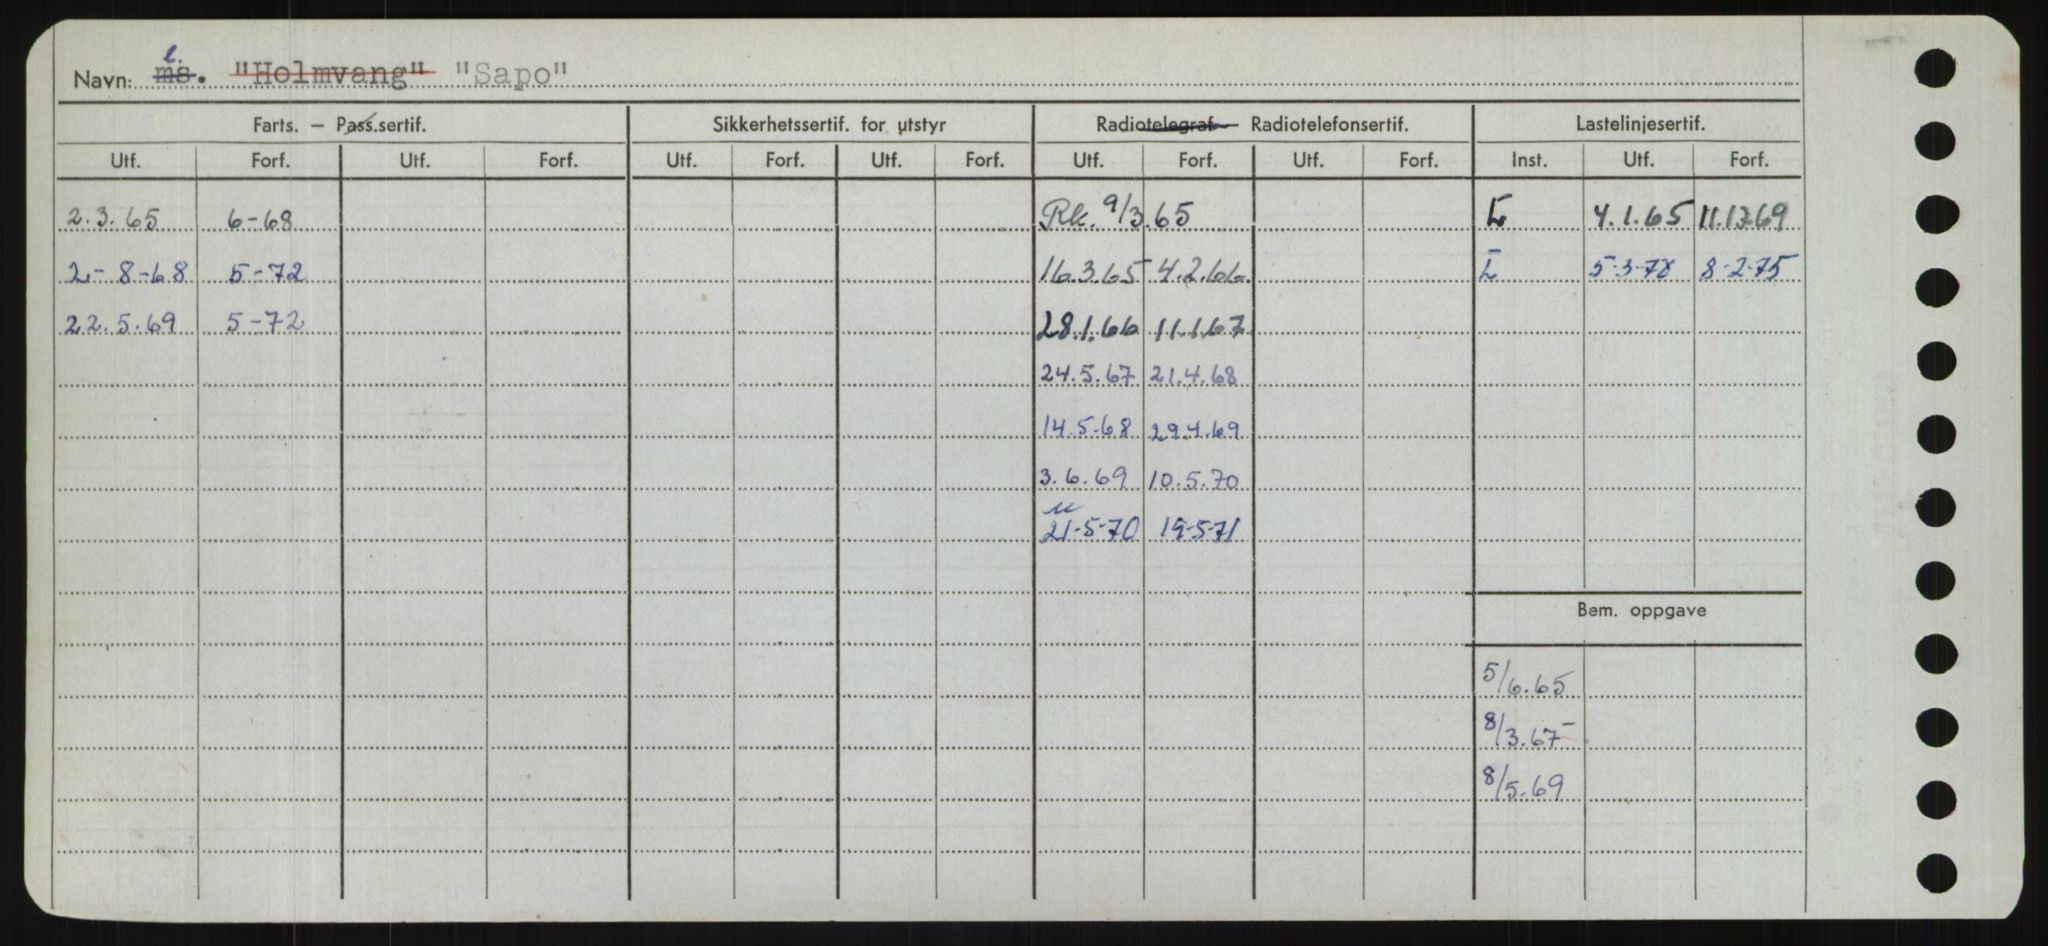 Navn: l. ms. "Holmvang" "Sapo"
Farts. — Pass.sertif. Sikkerhetssertif. for utstyr Radiotelegraf — Radiotelefonsertif. Lastelinjesertif.
Utf. Forf. Utf. Forf. Utf. Forf. Utf. Forf. Utf. Forf. Utf. Forf. Inst. Utf. Forf.
2.3.65 6-68 Rk. 9/3.65 4.1.65
2-8-68 5-72 16.3.65 4.2.66. 8-2-75
22.5.69 5-72 28.1.66 11.1.67
24.5.67 21.4.68
14.5.68 29.4.69
3.6.69 10.5.70
21-5-70 19-5-71
Bem. oppgave
5/6.65
8/3.67-
8/5.69